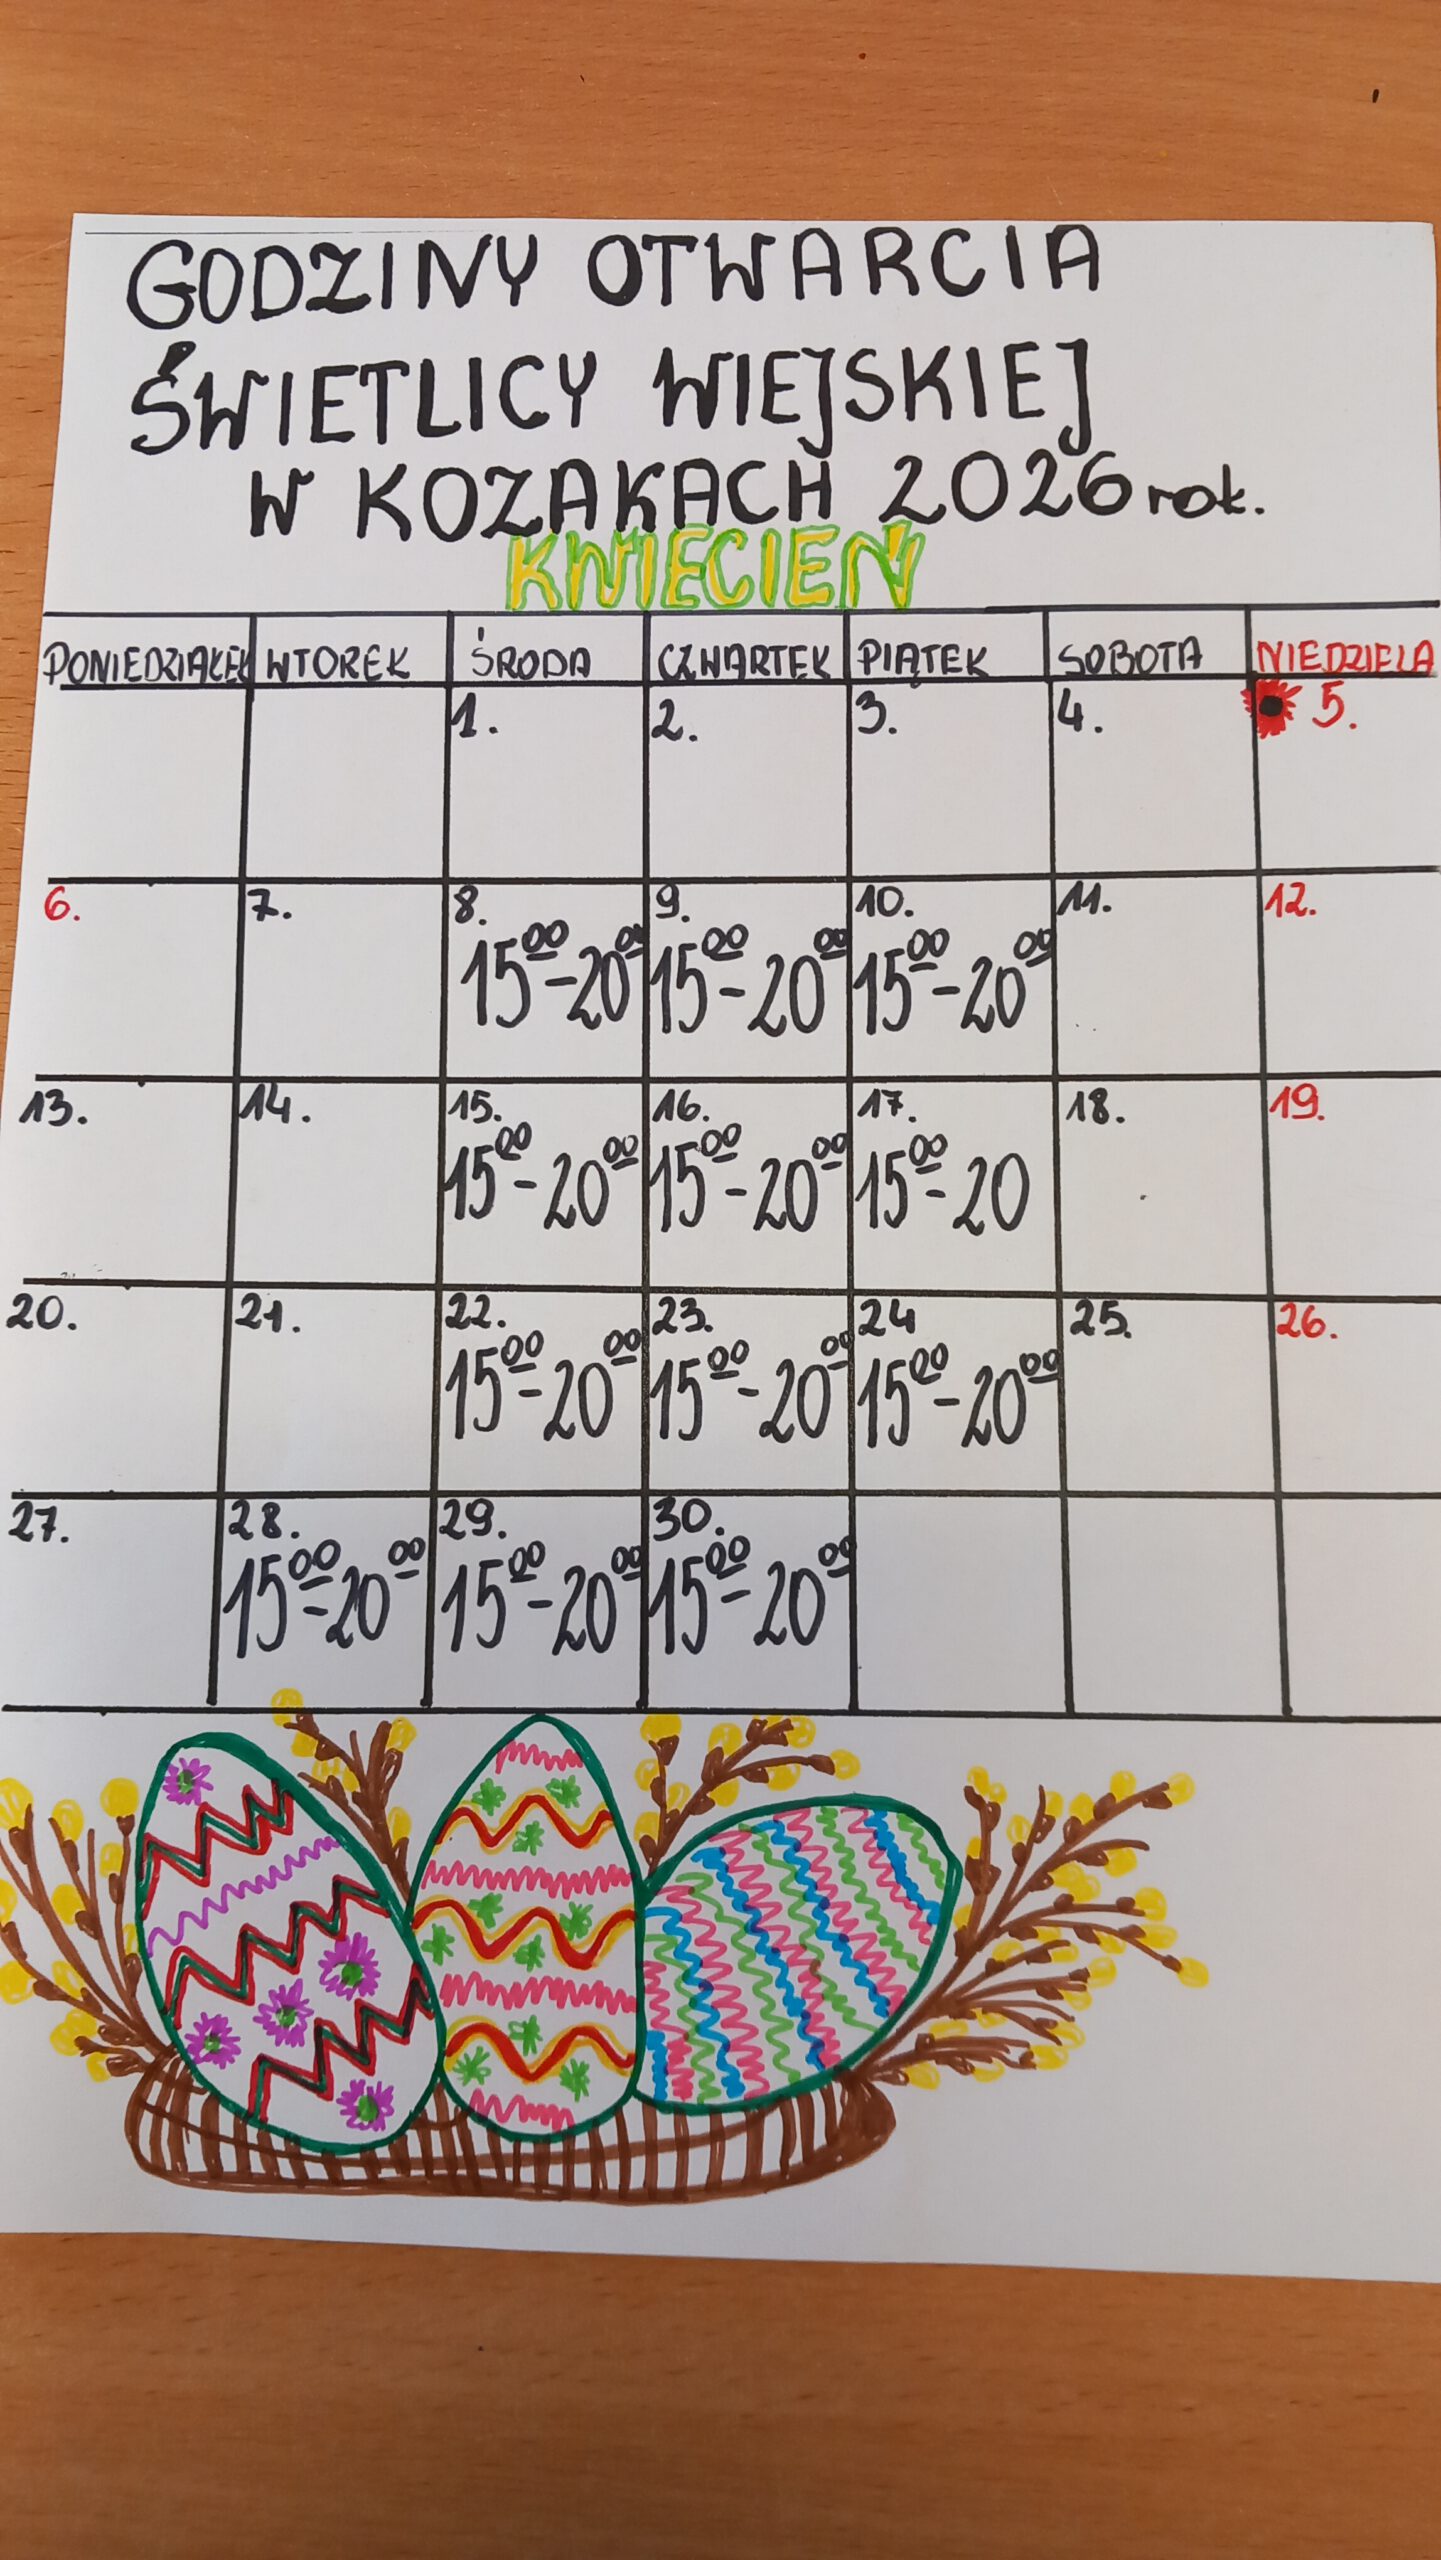 GODZINY OTWARCIA
ŚWIETLICY WIEJSKIEJ
W KOZAKACH 2026 rok.
KWIECIEŃ
PONIEDZIAŁEK WTOREK ŚRODA CZWARTEK PIĄTEK SOBOTA NIEDZIELA
1. 2. 3. 4. 5.
6. 7. 8. 9. 10. 11. 12.
15⁰⁰-20⁰⁰ 15⁰⁰-20⁰⁰ 15⁰⁰-20⁰⁰
13. 14. 15. 16. 17. 18. 19.
15⁰⁰-20⁰⁰ 15⁰⁰-20⁰⁰ 15⁰⁰-20
20. 21. 22. 23. 24 25. 26.
15⁰⁰-20⁰⁰ 15⁰⁰-20⁰⁰ 15⁰⁰-20⁰⁰
27. 28. 29. 30.
15⁰⁰-20⁰⁰ 15⁰⁰-20⁰⁰ 15⁰⁰-20⁰⁰